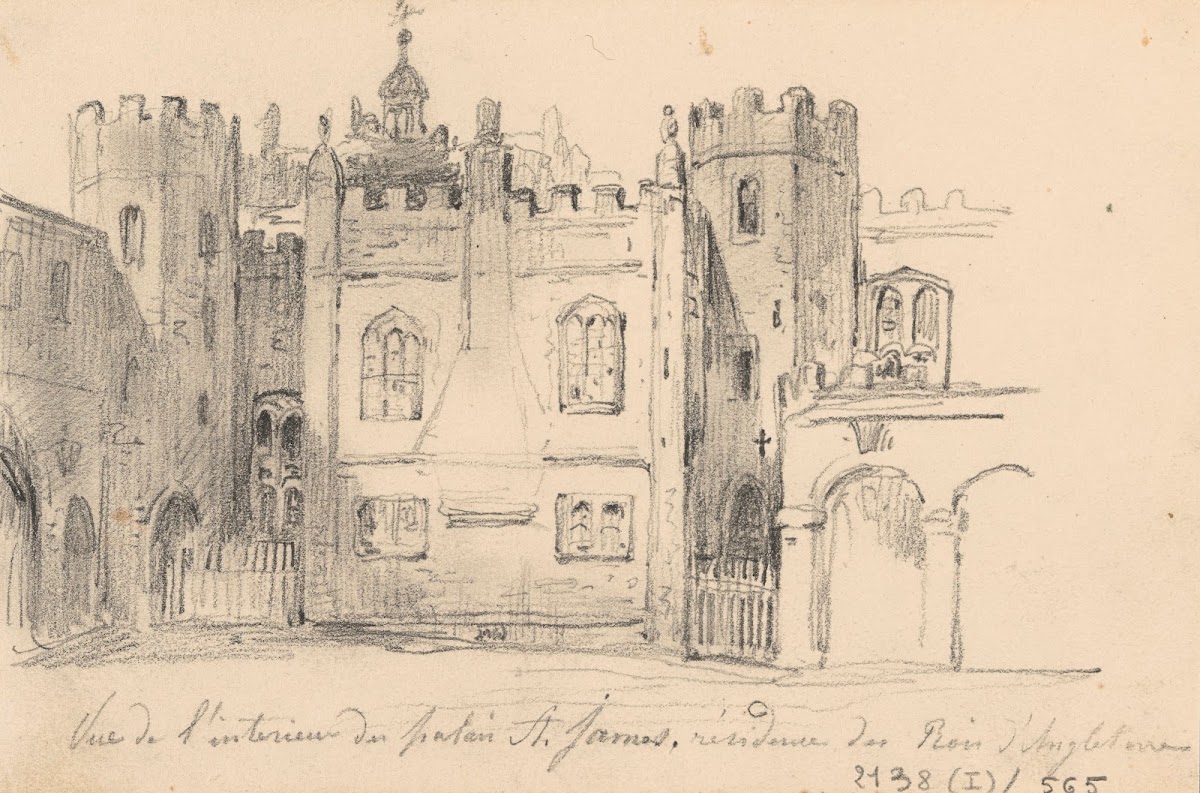 Vue de l'interieur du palais St. James, résidence des Rois d'Angleterre
2138 (I) / 565